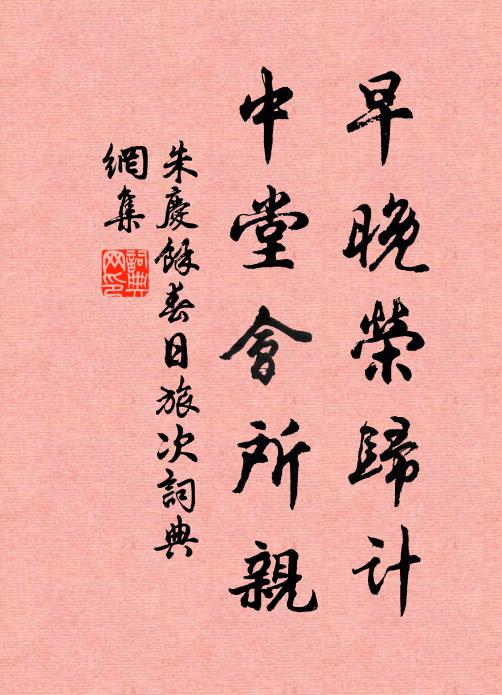 早晚榮歸計
中堂會所親
朱慶餘春日旅次詞典
網集
詞典
網印